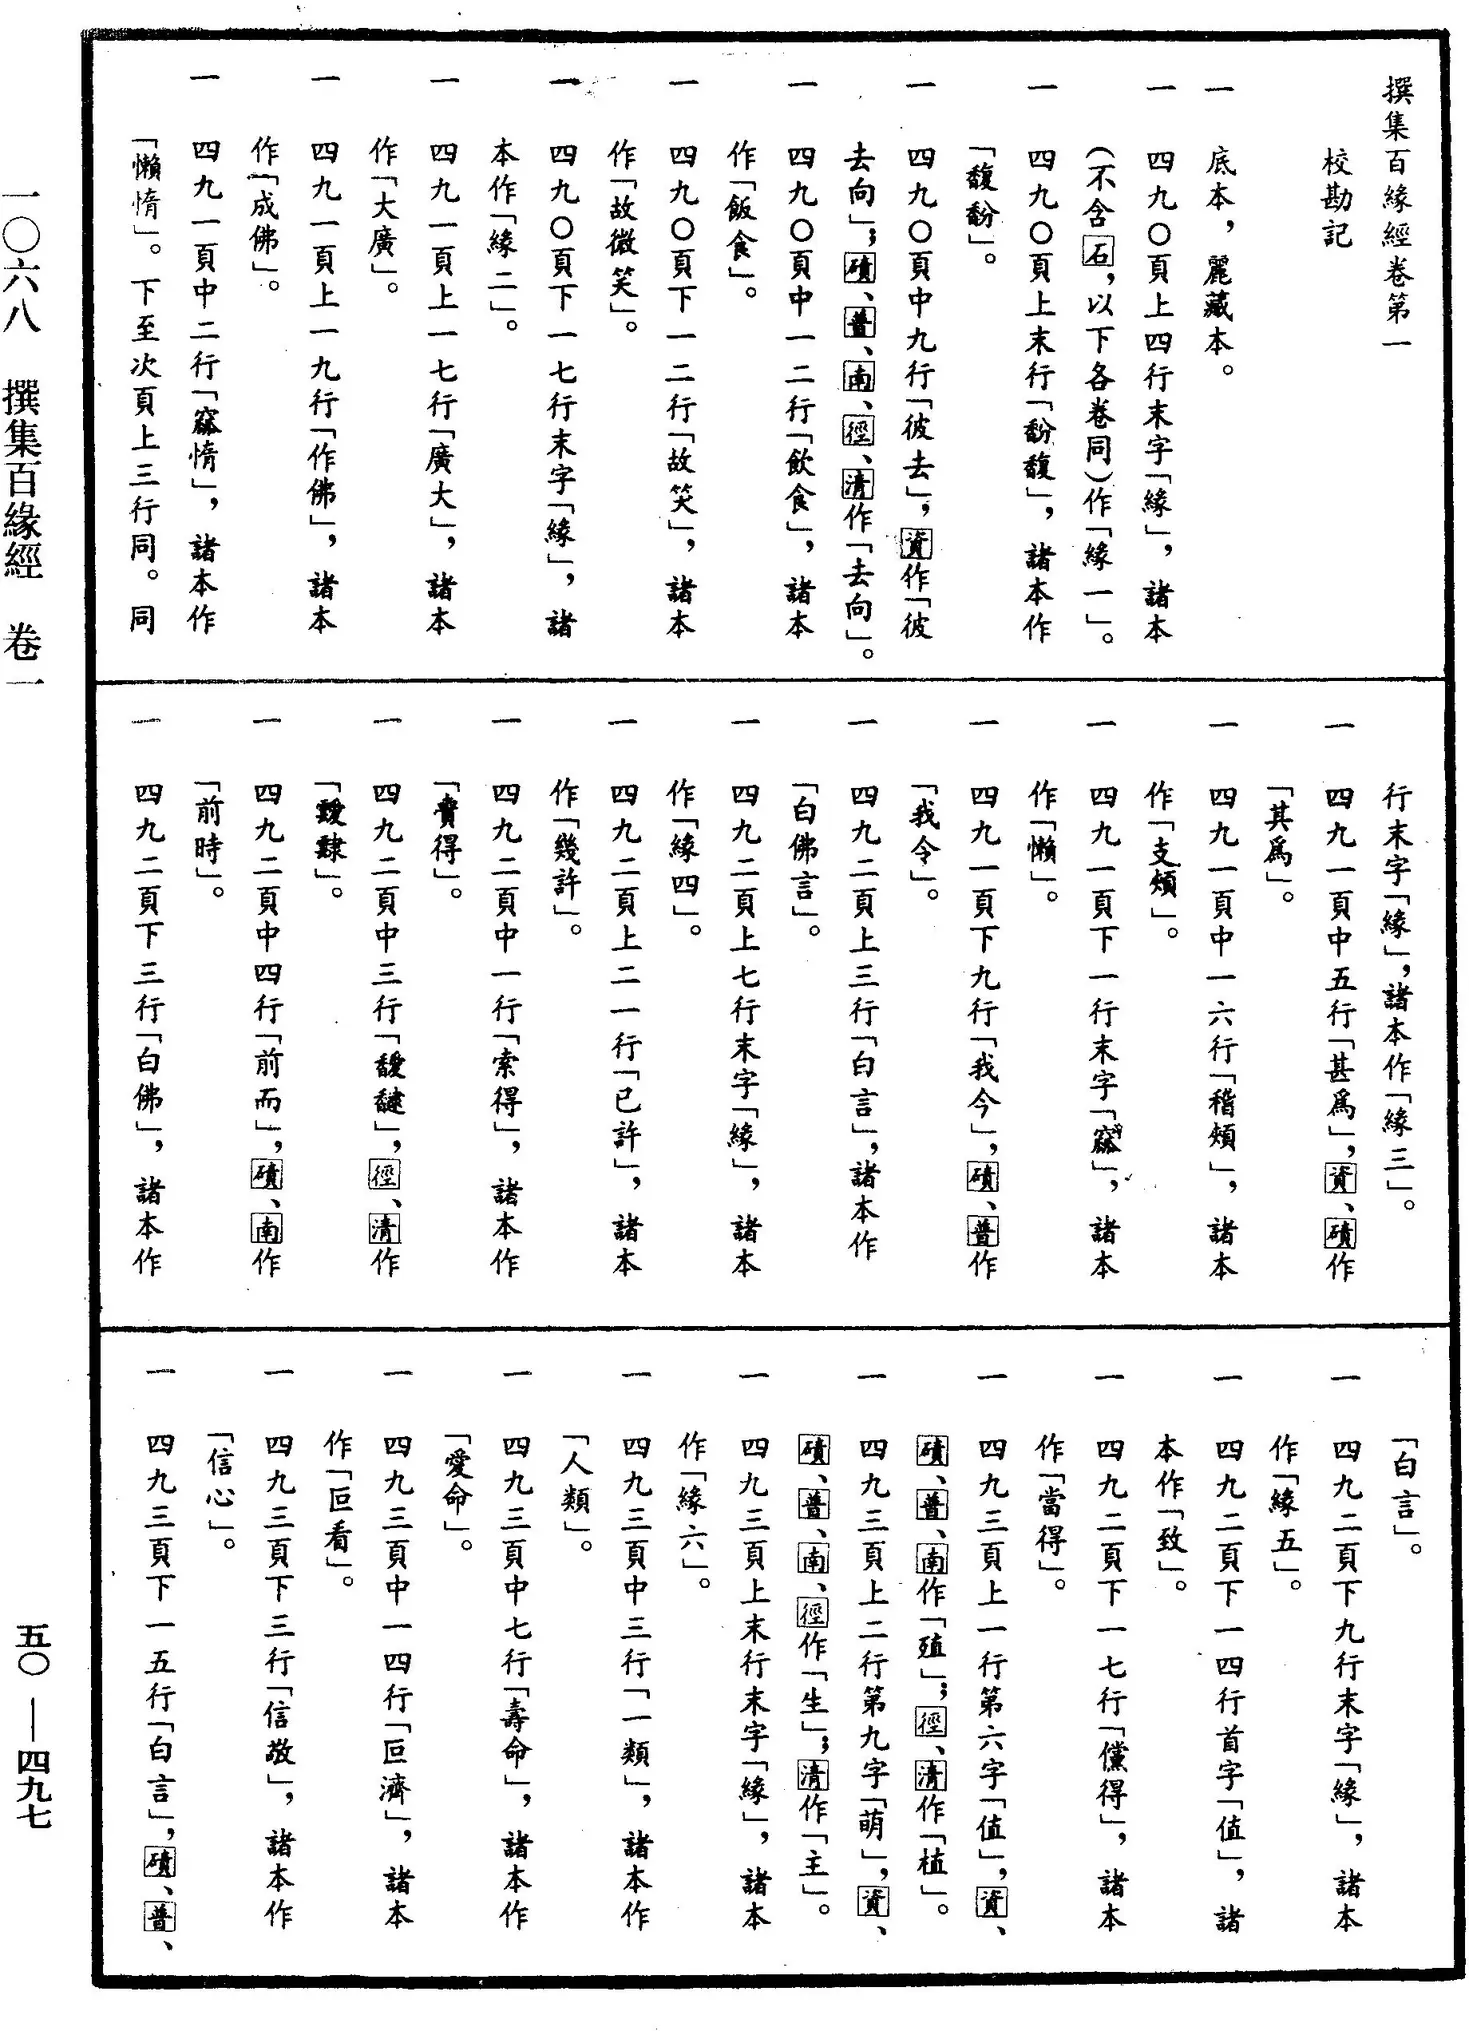 撰集百緣經卷第一
校勘記
一　底本，麗藏本。
一　四九〇頁上四行末字「緣」，諸本
（不含石，以下各卷同）作「緣一」。
一　四九〇頁上末行「馚馥」，諸本作
「馥馚」。
一　四九〇頁中九行「彼去」，資作「彼
去向」；磧、普、南、徑、清作「去向」。
一　四九〇頁中一二行「飲食」，諸本
作「飯食」。
一　四九〇頁下一二行「故笑」，諸本
作「故微笑」。
一　四九〇頁下一七行末字「緣」，諸
本作「緣二」。
一　四九一頁上一七行「廣大」，諸本
作「大廣」。
一　四九一頁上一九行「作佛」，諸本
作「成佛」。
一　四九一頁中二行「惰」，諸本作
「懶惰」。下至次頁上三行同。同
行末字「緣」，諸本作「緣三」。
一　四九一頁中五行「甚爲」，資、磧作
「其爲」。
一　四九一頁中一六行「稽頰」，諸本
作「支頰」。
一　四九一頁下一行末字「」，諸本
作「懶」。
一　四九一頁下九行「我今」，磧、普作
「我令」。
一　四九二頁上三行「白言」，諸本作
「白佛言」。
一　四九二頁上七行末字「緣」，諸本
作「緣四」。
一　四九二頁上二一行「已許」，諸本
作「幾許」。
一　四九二頁中一行「索得」，諸本作
「賣得」。
一　四九二頁中三行「」，徑、清作
「靉靆」。
一　四九二頁中四行「前而」，磧、南作
「前時」。
一　四九二頁下三行「白佛」，諸本作
「白言」。
一　四九二頁下九行末字「緣」，諸本
作「緣五」。
一　四九二頁下一四行首字「值」，諸
本作「致」。
一　四九二頁下一七行「儻得」，諸本
作「當得」。
一　四九三頁上一行第六字「值」，資、
磧、普、南作「殖」；徑、清作「植」。
一　四九三頁上二行第九字「萌」，資、
磧、普、南、徑作「生」；清作「主」。
一　四九三頁上末行末字「緣」，諸本
作「緣六」。
一　四九三頁中三行「一類」，諸本作
「人類」。
一　四九三頁中七行「壽命」，諸本作
「愛命」。
一　四九三頁中一四行「叵濟」，諸本
作「叵看」。
一　四九三頁下三行「信敬」，諸本作
「信心」。
一　四九三頁下一五行「白言」，磧、普、
一〇六八　撰集百緣經　卷一
五〇—四九七